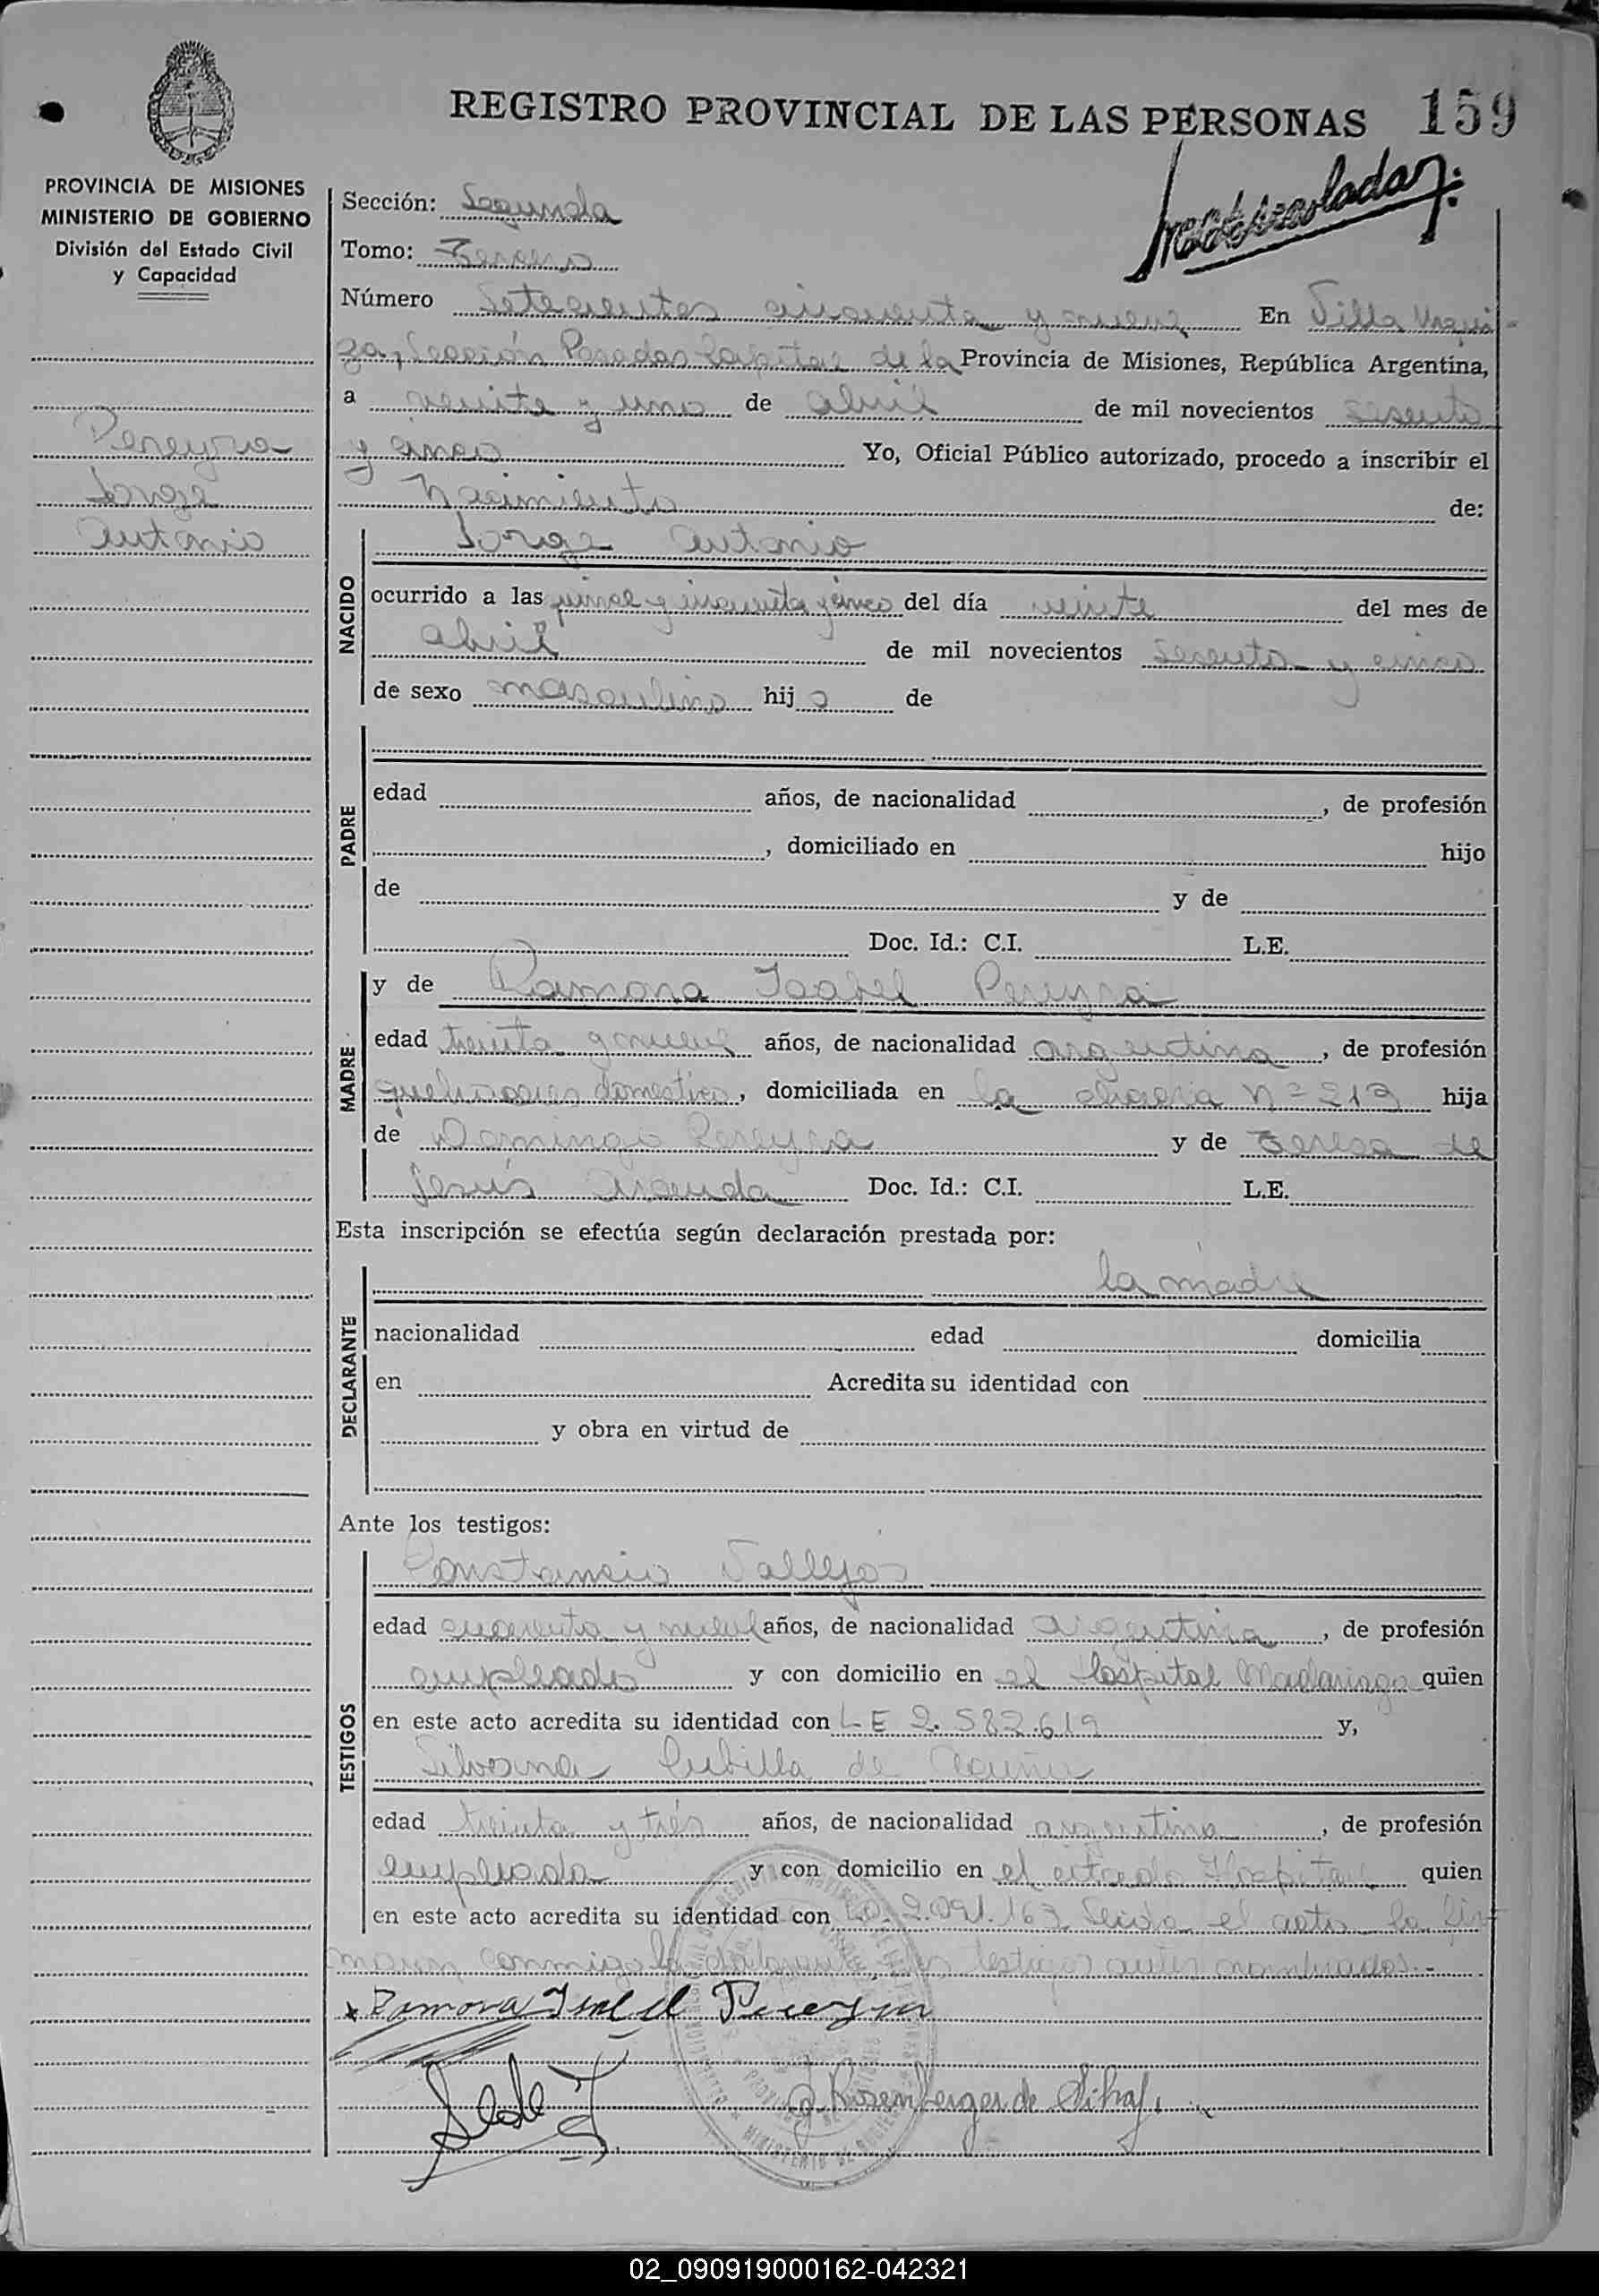 REGISTRO PROVINCIAL DE LAS PERSONAS 159
PROVINCIA DE MISIONES
MINISTERIO DE GOBIERNO
División del Estado Civil
y Capacidad
Pereyra
Jorge
Antonio
Sección: Segunda
Tomo: Tercero
Número Setecientos cincuenta y nueve En Villa Urqui-
za, Sección Posadas Capital de la Provincia de Misiones, República Argentina,
a veinte y uno de abril de mil novecientos sesenta
y cinco Yo, Oficial Público autorizado, procedo a inscribir el
Nacimiento de:
NACIDO
Jorge Antonio
ocurrido a las y cincuenta y cinco del día veinte del mes de
abril de mil novecientos sesenta y cinco
de sexo masculino hijo de
PADRE
edad años, de nacionalidad , de profesión
, domiciliado en hijo
de y de
Doc. Id.: C.I. L.E.
MADRE
y de Ramona Isabel Pereyra
edad treinta y nueve años, de nacionalidad argentina, de profesión
quehaceres domesticos, domiciliada en la chacra Nº 213 hija
de Domingo Pereyra y de Teresa de
Jesús Aranda Doc. Id.: C.I. L.E.
Esta inscripción se efectúa según declaración prestada por:
DECLARANTE
la madre
nacionalidad edad domicilia
en Acredita su identidad con
y obra en virtud de
Ante los testigos:
TESTIGOS
Constancio Vallejos
edad cuarenta y nueve años, de nacionalidad argentina, de profesión
empleado y con domicilio en el Hospital Madariaga quien
en este acto acredita su identidad con L E 2.582.619 y,
Silvana Cubilla de Acuña
edad treinta y trés años, de nacionalidad argentina, de profesión
empleada y con domicilio en el citado Hospital quien
en este acto acredita su identidad con 2.091.163 Leida el acta la fir-
man conmigo la declarante y los testigos antes nombrados.-
Ramona Isabel Pereyra
Rosenberger de
02_090919000162-042321